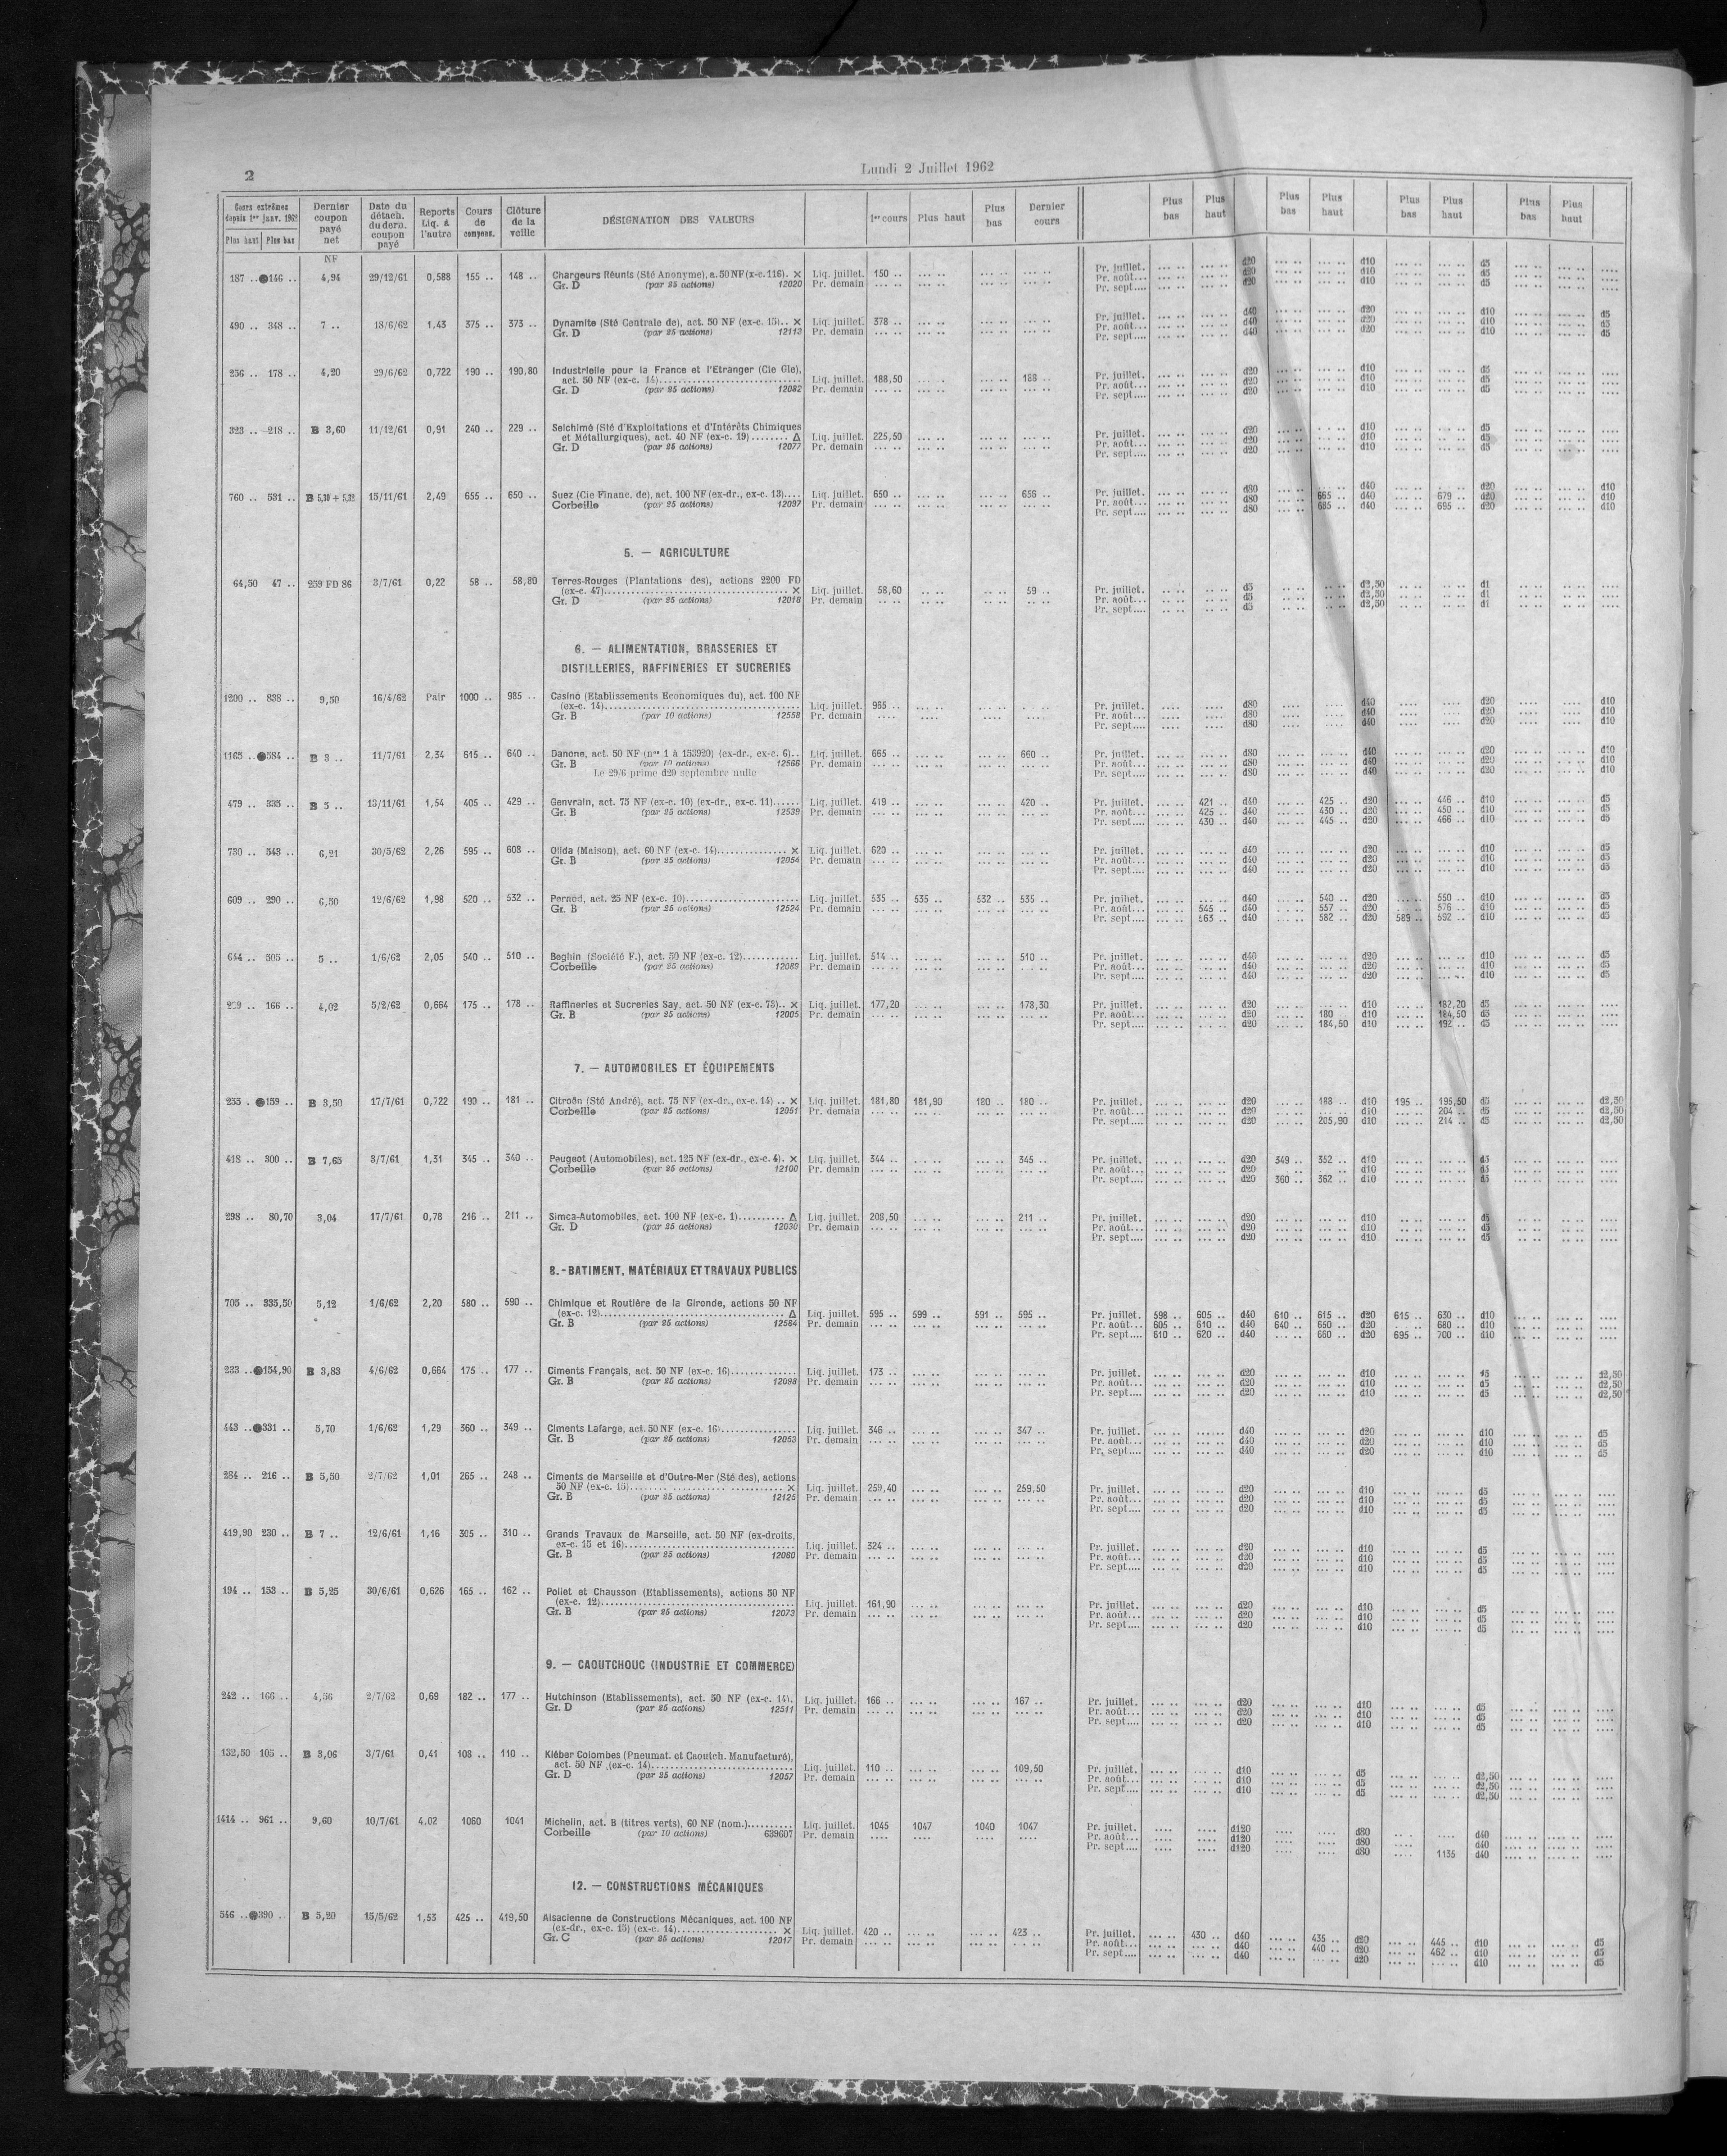 2
Lundi 2 Juillet 1962
Cours extrêmes depuis 1er janv. 1962 Plus haut Plus bas
Dernier coupon payé net
Date du détach. du dern. coupon payé
Reports Liq. à l'autre
Cours de compens.
Clôture de la veille
DÉSIGNATION DES VALEURS
1er cours Plus haut Plus bas Dernier cours
Plus bas Plus haut Plus bas Plus haut Plus bas Plus haut Plus bas Plus haut
NF
187 .. 146 .. 4,94 29/12/61 0,588 155 .. 148 .. Chargeurs Réunis (Sté Anonyme), a. 50 NF (x-c. 116). × Liq. juillet. 150 .. Pr. juillet. d20 d10 d5
Gr. D (par 25 actions) 12020 Pr. demain Pr. août... d20 d10 d5
Pr. sept.... d20 d10 d5
490 .. 348 .. 7 .. 18/6/62 1,43 375 .. 373 .. Dynamite (Sté Centrale de), act. 50 NF (ex-c. 15).. × Liq. juillet. 378 .. Pr. juillet. d40 d20 d10 d5
Gr. D (par 25 actions) 12113 Pr. demain Pr. août... d40 d20 d10 d5
Pr. sept.... d40 d20 d10 d5
256 .. 178 .. 4,20 29/6/62 0,722 190 .. 190,80 Industrielle pour la France et l'Etranger (Cie Gle),
act. 50 NF (ex-c. 14) Liq. juillet. 188,50 188 .. Pr. juillet. d20 d10 d5
Gr. D (par 25 actions) 12082 Pr. demain Pr. août... d20 d10 d5
Pr. sept.... d20 d10 d5
323 .. 218 .. B 3,60 11/12/61 0,91 240 .. 229 .. Selchimé (Sté d'Exploitations et d'Intérêts Chimiques
et Métallurgiques), act. 40 NF (ex-c. 19)........ Δ Liq. juillet. 225,50 Pr. juillet. d20 d10 d5
Gr. D (par 25 actions) 12077 Pr. demain Pr. août... d20 d10 d5
Pr. sept.... d20 d10 d5
760 .. 531 .. B 5,30 + 5,32 15/11/61 2,49 655 .. 650 .. Suez (Cie Financ. de), act. 100 NF (ex-dr., ex-c. 13).... Liq. juillet. 650 .. 656 .. Pr. juillet. d80 d40 d20 d10
Corbeille (par 25 actions) 12097 Pr. demain Pr. août... d80 665 .. d40 679 .. d20 d10
Pr. sept.... d80 685 .. d40 695 .. d20 d10
5. — AGRICULTURE
64,50 47 .. 259 FD 86 3/7/61 0,22 58 .. 58,80 Terres-Rouges (Plantations des), actions 2200 FD
(ex-c. 47) × Liq. juillet. 58,60 59 .. Pr. juillet. d5 d2,50 d1
Gr. D (par 25 actions) 12018 Pr. demain Pr. août... d5 d2,50 d1
Pr. sept.... d5 d2,50 d1
6. — ALIMENTATION, BRASSERIES ET
DISTILLERIES, RAFFINERIES ET SUCRERIES
1200 .. 838 .. 9,50 16/4/62 Pair 1000 .. 985 .. Casino (Etablissements Economiques du), act. 100 NF
(ex-c. 14) Liq. juillet. 965 .. Pr. juillet. d80 d40 d20 d10
Gr. B (par 10 actions) 12558 Pr. demain Pr. août... d80 d40 d20 d10
Pr. sept.... d80 d40 d20 d10
1165 .. 584 .. B 3 .. 11/7/61 2,34 615 .. 640 .. Danone, act. 50 NF (nos 1 à 153920) (ex-dr., ex-c. 6).. Liq. juillet. 665 .. 660 .. Pr. juillet. d80 d40 d20 d10
Gr. B (par 10 actions) 12566 Pr. demain Pr. août... d80 d40 d20 d10
Le 29/6 prime d20 septembre nulle Pr. sept.... d80 d40 d20 d10
479 .. 335 .. B 5 .. 13/11/61 1,54 405 .. 429 .. Genvrain, act. 75 NF (ex-c. 10) (ex-dr., ex-c. 11)...... Liq. juillet. 419 .. 420 .. Pr. juillet. 421 .. d40 425 .. d20 446 .. d10 d5
Gr. B (par 25 actions) 12539 Pr. demain Pr. août... 425 .. d40 430 .. d20 450 .. d10 d5
Pr. sept.... 430 .. d40 445 .. d20 466 .. d10 d5
730 .. 543 .. 6,21 30/5/62 2,26 595 .. 608 .. Olida (Maison), act. 60 NF (ex-c. 14) × Liq. juillet. 620 .. Pr. juillet. d40 d20 d10 d5
Gr. B (par 25 actions) 12054 Pr. demain Pr. août... d40 d20 d10 d5
Pr. sept.... d40 d20 d10 d5
609 .. 290 .. 6,50 12/6/62 1,98 520 .. 532 .. Pernod, act. 25 NF (ex-c. 10) Liq. juillet. 535 .. 535 .. 532 .. 535 .. Pr. juillet. d40 540 .. d20 550 .. d10 d5
Gr. B (par 25 actions) 12524 Pr. demain Pr. août... 545 .. d40 557 .. d20 576 .. d10 d5
Pr. sept.... 563 .. d40 582 .. d20 589 .. 592 .. d10 d5
644 .. 505 .. 5 .. 1/6/62 2,05 540 .. 510 .. Beghin (Société F.), act. 50 NF (ex-c. 12) Liq. juillet. 514 .. 510 .. Pr. juillet. d40 d20 d10 d5
Corbeille (par 25 actions) 12089 Pr. demain Pr. août... d40 d20 d10 d5
Pr. sept.... d40 d20 d10 d5
166 .. 4,02 5/2/62 0,664 175 .. 178 .. Raffineries et Sucreries Say, act. 50 NF (ex-c. 73).. × Liq. juillet. 177,20 178,30 Pr. juillet. d20 d10 182,20 d5
Gr. B (par 25 actions) 12005 Pr. demain Pr. août... d20 180 .. d10 184,50 d5
Pr. sept.... d20 184,50 d10 192 .. d5
7. — AUTOMOBILES ET ÉQUIPEMENTS
255 . 159 .. B 3,50 17/7/61 0,722 190 .. 181 .. Citroën (Sté André), act. 75 NF (ex-dr., ex-c. 14) .. × Liq. juillet. 181,80 181,90 180 .. 180 .. Pr. juillet. d20 188 .. d10 195 .. 195,50 d5 d2,50
Corbeille (par 25 actions) 12051 Pr. demain Pr. août... d20 d10 204 .. d5 d2,50
Pr. sept.... d20 205,90 d10 214 .. d5 d2,50
418 .. 300 .. B 7,65 3/7/61 1,31 345 .. 340 .. Peugeot (Automobiles), act. 125 NF (ex-dr., ex-c. 4). × Liq. juillet. 344 .. 345 .. Pr. juillet. d20 349 .. 352 .. d10 d5
Corbeille (par 25 actions) 12100 Pr. demain Pr. août... d20 d10 d5
Pr. sept.... d20 360 .. 362 .. d10 d5
298 .. 80,70 3,04 17/7/61 0,78 216 .. 211 .. Simca-Automobiles, act. 100 NF (ex-c. 1).......... Δ Liq. juillet. 208,50 211 .. Pr. juillet. d20 d10 d5
Gr. D (par 25 actions) 12030 Pr. demain Pr. août... d20 d10 d5
Pr. sept.... d20 d10 d5
8. - BATIMENT, MATÉRIAUX ET TRAVAUX PUBLICS
705 .. 335,50 5,12 1/6/62 2,20 580 .. 590 .. Chimique et Routière de la Gironde, actions 50 NF
(ex-c. 12) Δ Liq. juillet. 595 .. 599 .. 591 .. 595 .. Pr. juillet. 598 .. 605 .. d40 610 .. 615 .. d20 615 .. 630 .. d10
Gr. B (par 25 actions) 12584 Pr. demain Pr. août... 605 .. 610 .. d40 640 .. 650 .. d20 680 .. d10
Pr. sept.... 610 .. 620 .. d40 660 .. d20 695 .. 700 .. d10
233 .. 154,90 B 3,83 4/6/62 0,664 175 .. 177 .. Ciments Français, act. 50 NF (ex-c. 16) Liq. juillet. 173 .. Pr. juillet. d20 d10 d5 d2,50
Gr. B (par 25 actions) 12098 Pr. demain Pr. août... d20 d10 d5 d2,50
Pr. sept.... d20 d10 d5 d2,50
443 .. 331 .. 5,70 1/6/62 1,29 360 .. 349 .. Ciments Lafarge, act. 50 NF (ex-c. 16) Liq. juillet. 346 .. 347 .. Pr. juillet. d40 d20 d10 d5
Gr. B (par 25 actions) 12053 Pr. demain Pr. août... d40 d20 d10 d5
Pr. sept.... d40 d20 d10 d5
284 .. 216 .. B 5,50 2/7/62 1,01 265 .. 248 .. Ciments de Marseille et d'Outre-Mer (Sté des), actions
50 NF (ex-c. 15) × Liq. juillet. 259,40 259,50 Pr. juillet. d20 d10 d5
Gr. B (par 25 actions) 12125 Pr. demain Pr. août... d20 d10 d5
Pr. sept.... d20 d10 d5
419,90 230 .. B 7 .. 12/6/61 1,16 305 .. 310 .. Grands Travaux de Marseille, act. 50 NF (ex-droits,
ex-c. 15 et 16) Liq. juillet. 324 .. Pr. juillet. d20 d10 d5
Gr. B (par 25 actions) 12060 Pr. demain Pr. août... d20 d10 d5
Pr. sept.... d20 d10 d5
194 .. 153 .. B 5,25 30/6/61 0,626 165 .. 162 .. Poliet et Chausson (Etablissements), actions 50 NF
(ex-c. 12) Liq. juillet. 161,90 Pr. juillet. d20 d10 d5
Gr. B (par 25 actions) 12073 Pr. demain Pr. août... d20 d10 d5
Pr. sept.... d20 d10 d5
9. — CAOUTCHOUC (INDUSTRIE ET COMMERCE)
242 .. 166 .. 4,56 2/7/62 0,69 182 .. 177 .. Hutchinson (Etablissements), act. 50 NF (ex-c. 14). Liq. juillet. 166 .. 167 .. Pr. juillet. d20 d10 d5
Gr. D (par 25 actions) 12511 Pr. demain Pr. août... d20 d10 d5
Pr. sept.... d20 d10 d5
132,50 105 .. B 3,06 3/7/61 0,41 108 .. 110 .. Kléber Colombes (Pneumat. et Caoutch. Manufacturé),
act. 50 NF (ex-c. 14) Liq. juillet. 110 .. 109,50 Pr. juillet. d10 d5 d2,50
Gr. D (par 25 actions) 12057 Pr. demain Pr. août... d10 d5 d2,50
Pr. sept.... d10 d5 d2,50
1414 .. 961 .. 9,60 10/7/61 4,02 1060 1041 Michelin, act. B (titres verts), 60 NF (nom.).......... Liq. juillet. 1045 1047 1040 1047 Pr. juillet. d120 d80 d40
Corbeille (par 10 actions) 639607 Pr. demain Pr. août... d120 d80 d40
Pr. sept.... d120 d80 1135 d40
12. — CONSTRUCTIONS MÉCANIQUES
546 .. 390 .. B 5,20 15/5/62 1,53 425 .. 419,50 Alsacienne de Constructions Mécaniques, act. 100 NF
(ex-dr., ex-c. 13) (ex-c. 14) × Liq. juillet. 420 .. 423 .. Pr. juillet. 430 .. d40 435 .. d20 445 .. d10 d5
Gr. C (par 25 actions) 12017 Pr. demain Pr. août... d40 440 .. d20 462 .. d10 d5
Pr. sept.... d40 d20 d10 d5